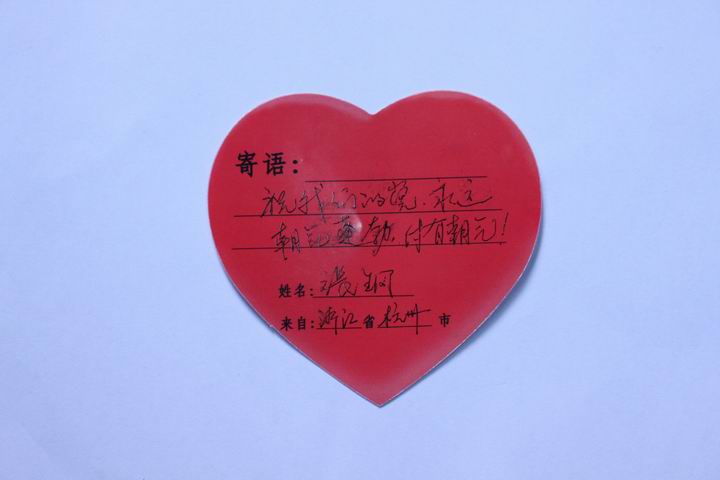 寄语:
祝我们的党永远
朝气蓬勃,付有朝气!
姓名:
来自:浙江省杭州市